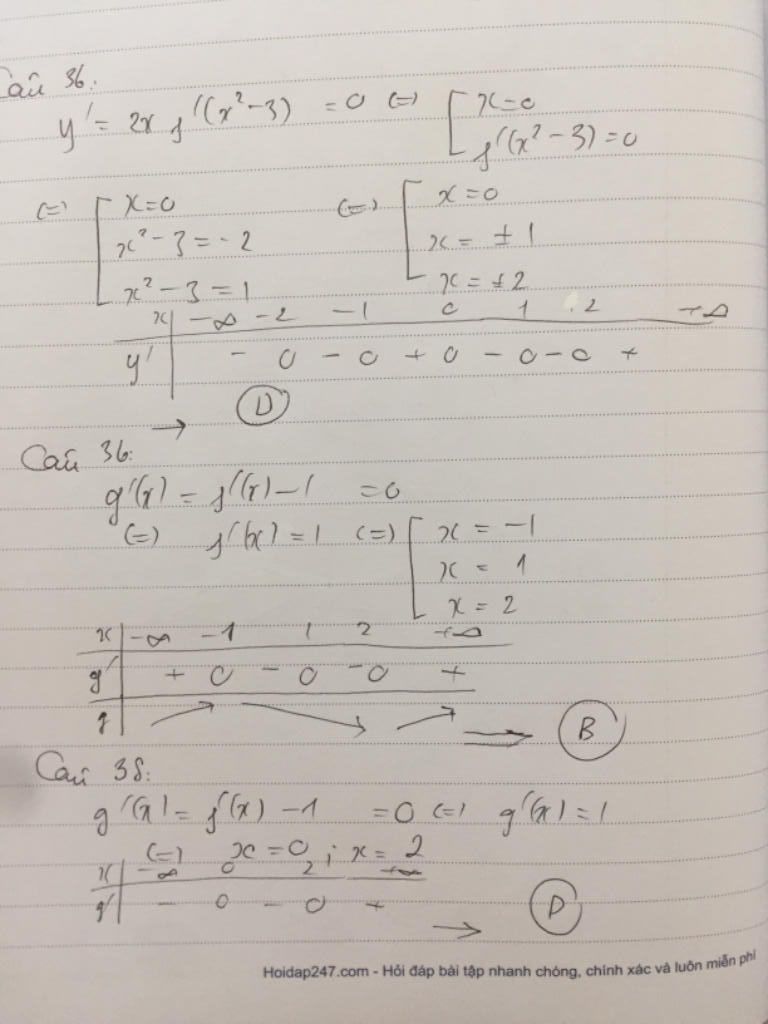 Câu 36:
y' = 2x f'(x² - 3) = 0 (=) [ x = 0
f'(x² - 3) = 0
(=) [ x = 0 (=) [ x = 0
x² - 3 = -2 x = ±1
x² - 3 = 1 x = ±2
x | -∞ -2 -1 0 1 2 +∞
y' | - 0 - 0 + 0 - 0 - 0 +
→ D
Câu 36:
g'(x) = f'(x) - 1 = 0
(=) f'(x) = 1 (=) [ x = -1
x = 1
x = 2
x | -∞ -1 1 2 +∞
g' | + 0 - 0 - 0 +
g | ↗ ↘ ↗ → B
Câu 38:
g'(x) = f'(x) - 1 = 0 (=) g'(x) = 1
(=) x = 0 ; x = 2
x | -∞ 0 2 +∞
g' | - 0 - 0 +
→ D
Hoidap247.com - Hỏi đáp bài tập nhanh chóng, chính xác và luôn miễn phí